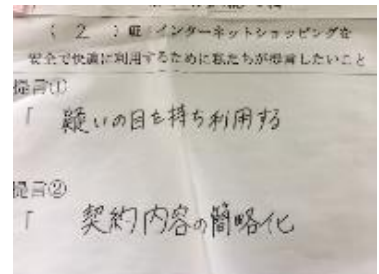 ( 2 )班：インターネットショッピングを
安全で快適に利用するために私たちが提言したいこと
提言①
「 疑いの目を持ち利用する
提言②
「 契約内容の簡略化